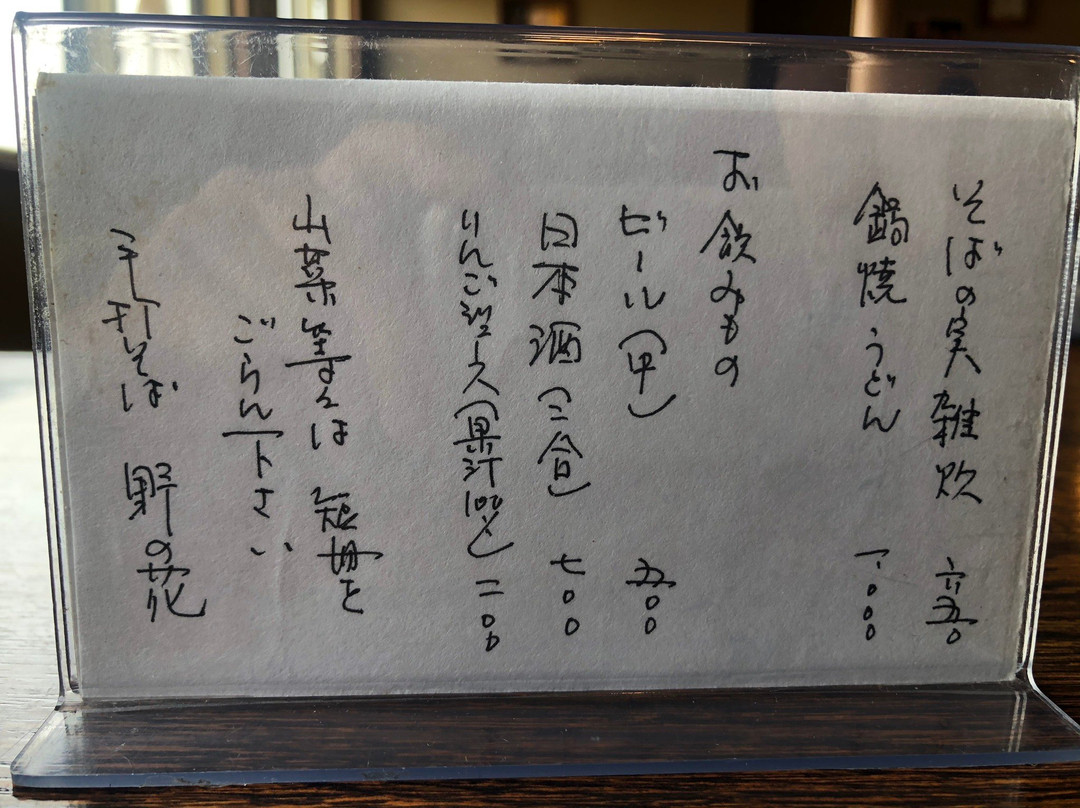 そばの実雑炊 六五〇
鍋焼うどん 一、〇〇〇
お飲みもの
ビール(中) 五〇〇
日本酒(二合) 七〇〇
りんごジュース(果汁100%) 二〇〇
山菜等々は 短冊を
ごらん下さい
手打そば 野の花